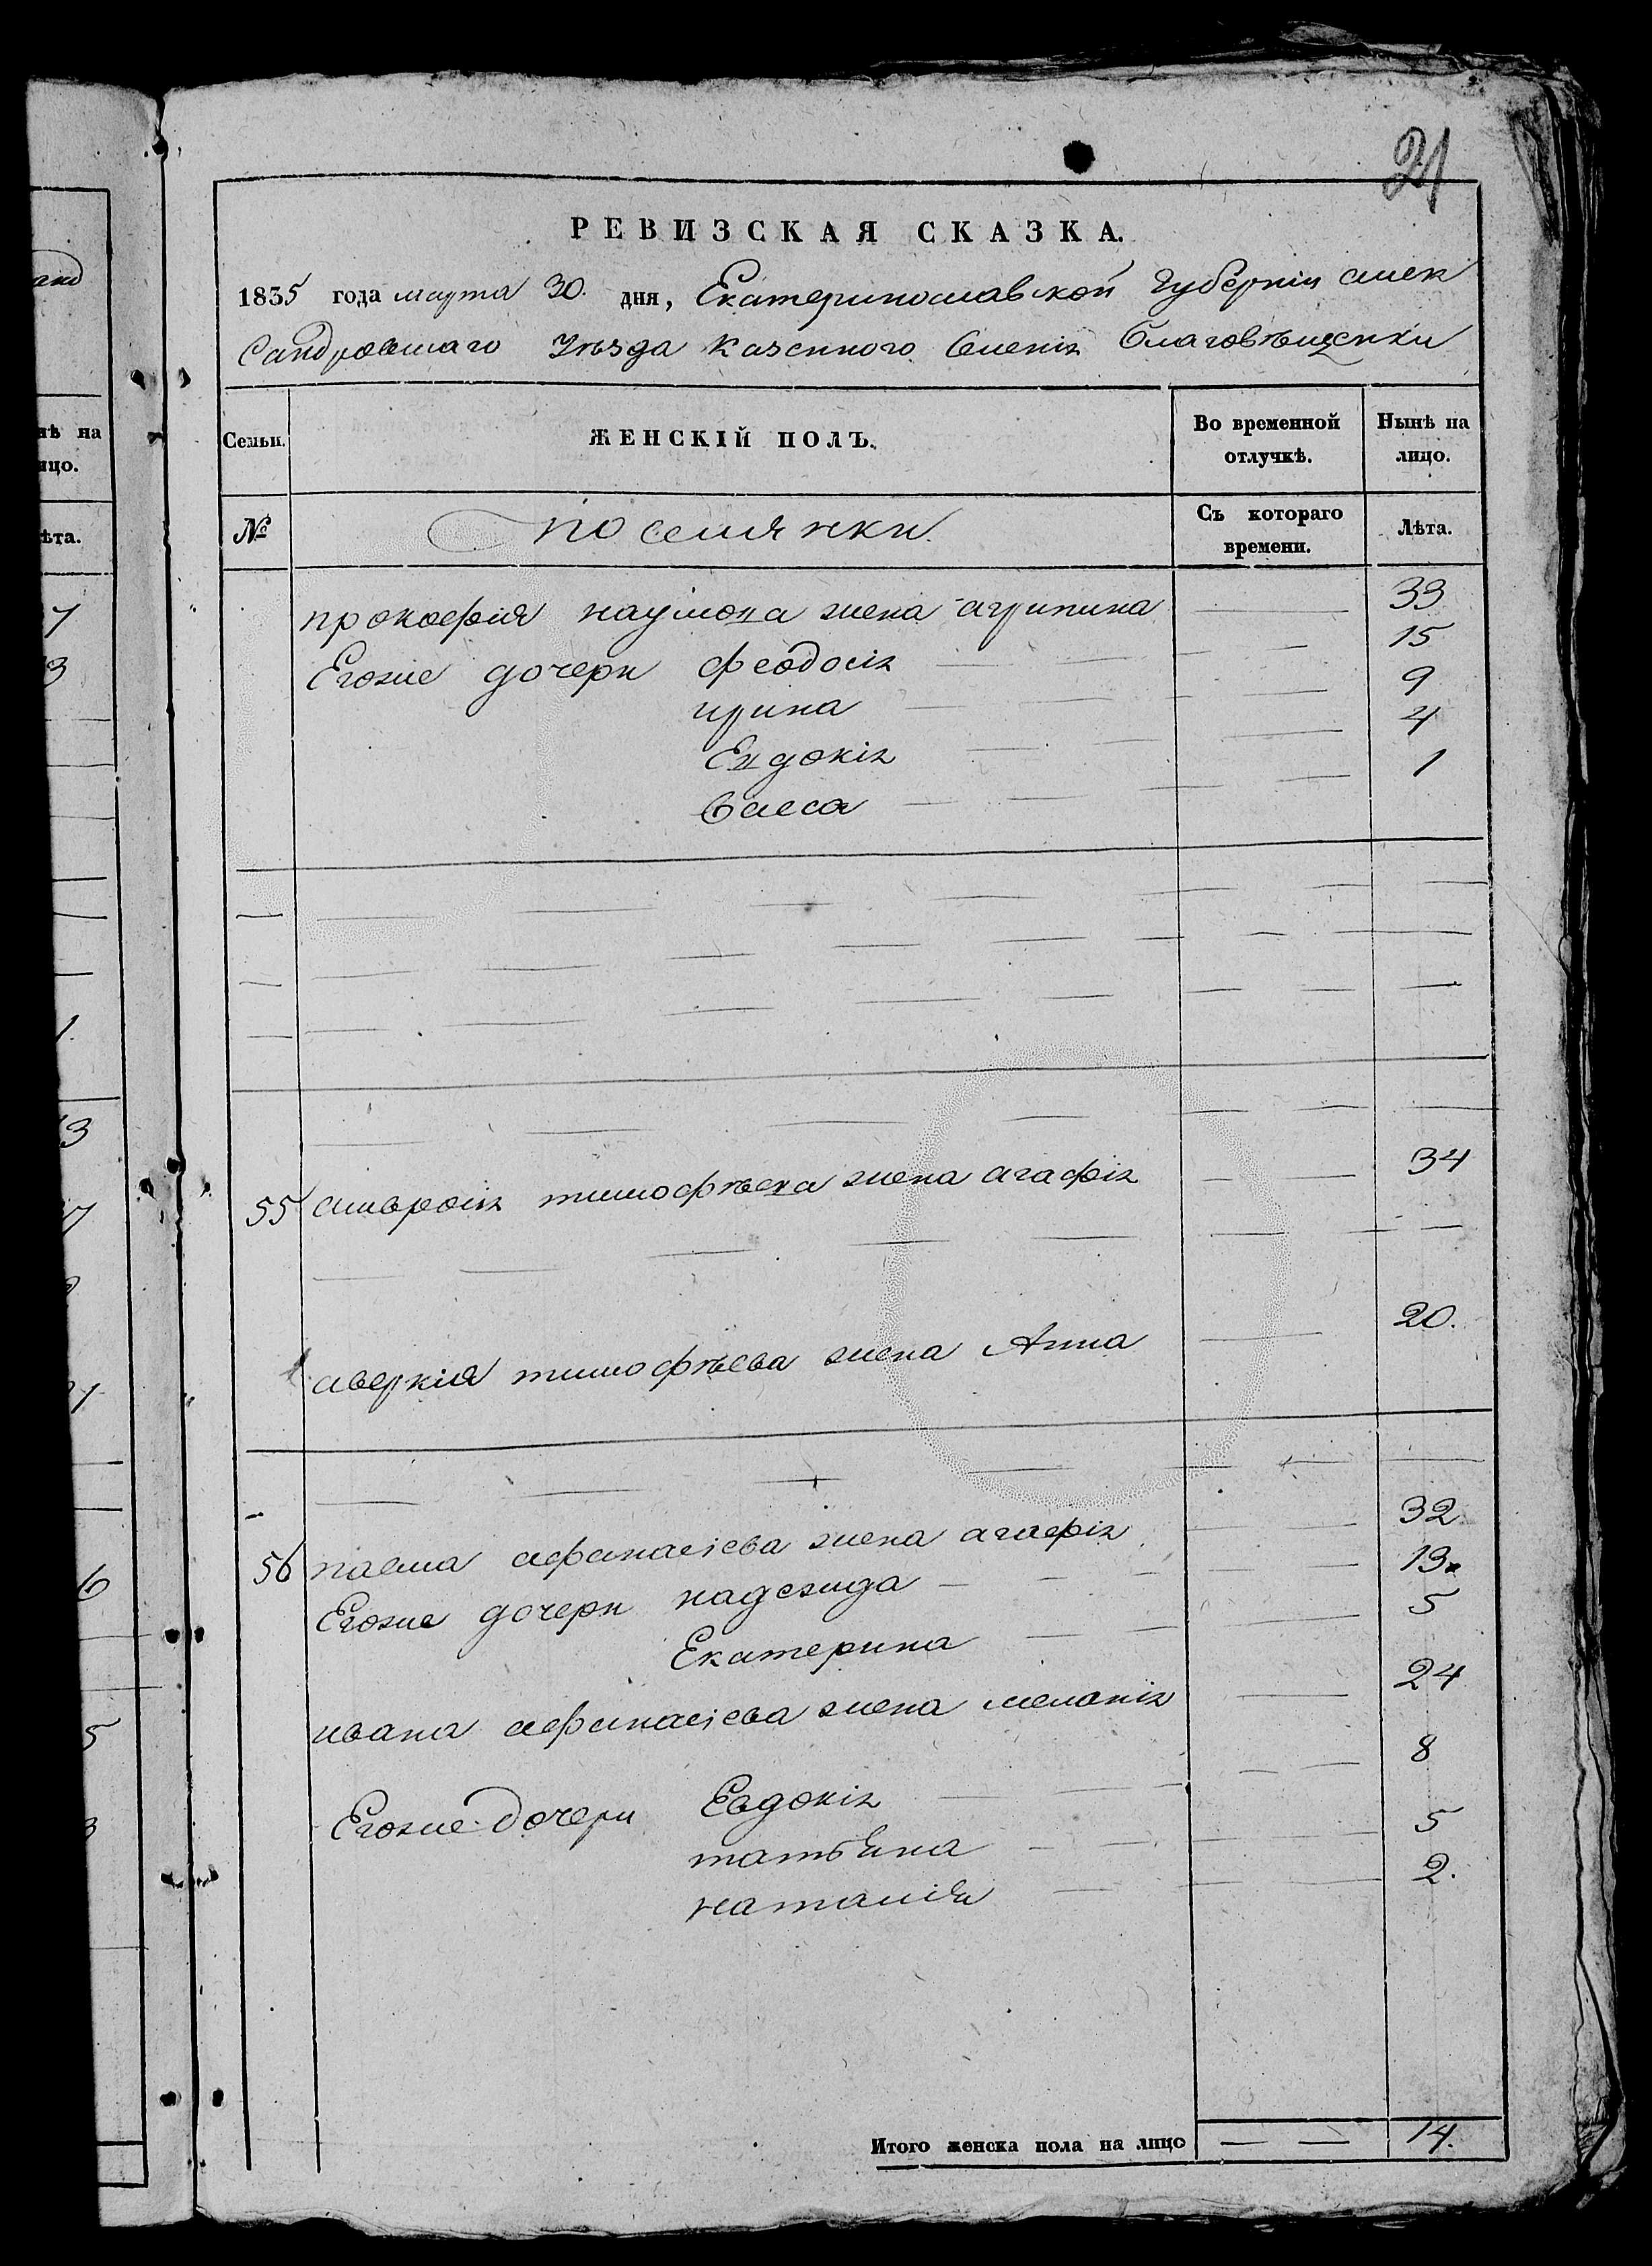 21
РЕВИЗСКАЯ СКАЗКА.
1835 года марта 30. дня, Екатеринославской Губерніи Алек
сандровскаго Уѣзда Казенного Селенія Благовѣщенки
Семьи. ЖЕНСКІЙ ПОЛЪ. Во временной отлучкѣ. Нынѣ на лицо.
№ поселянки. Съ котораго времени. Лѣта.
прокофия наумова жена агрипина 33
Егоже дочери феодосія 15
ирина 9
Евдокія 4
Васса 1
55 амвросія тимофѣева жена агафія 34
аверкия тимофѣева жена Анна 20.
56 павла афанасіева жена агафія 32
Егоже дочери надежда 13.
Екатерина 5
ивана афанасіева жена меланія 24
Егоже дочери Евдокія 8
татьяна 5
наталия 2.
Итого женска пола на лицо 14.